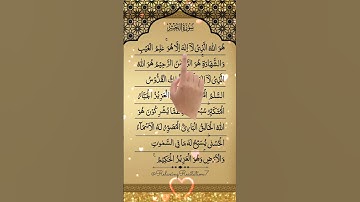 سورة الحشر
هُوَ اللهُ الَّذِىْ لَآ اِلٰهَ اِلَّا هُوَ عٰلِمُ الْغَيْبِ
وَالشَّهَادَةِ هُوَ الرَّحْمٰنُ الرَّحِيْمُ هُوَ اللهُ
الَّذِىْ لَآ اِلٰهَ الْقُدُّوْسُ
السَّلٰمُ الْعَزِيْزُ الْجَبَّارُ
الْمُتَكَبِّرُ يُشْرِكُوْنَ هُوَ
اللهُ الْخَالِقُ الْبَارِئُ الْمُصَوِّرُ لَهُ الْاَسْمَآءُ
الْحُسْنٰى يُسَبِّحُ لَهٗ مَا فِى السَّمٰوٰتِ
وَالْاَرْضِ وَهُوَ الْعَزِيْزُ الْحَكِيْمُ